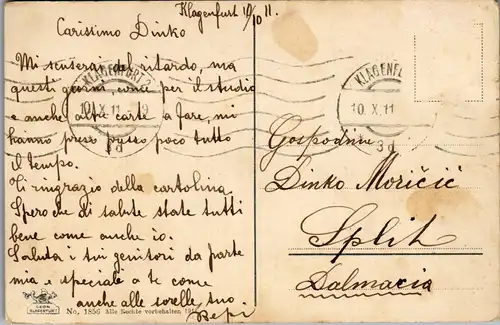 Klagenfurt 10/10 11.
Carissimo Dinko
Mi scuserai del ritardo, ma
questi giorni, come per il studio
e anche altre carte a fare, mi
hanno preso presso poco tutto
il tempo.
Ti ringrazio della cartolina.
Spero che di salute state tutti
bene come anche io.
Saluta i tui genitori da parte
mia e speciale a te come
anche alle sorelle, tuo
Bepi
KLAGENFURT 2
10. X. 11
KLAGENFU
10. X. 11
3d
Gospodine
Dinko Moričić
Split
Dalmacia
LEON
KLAGENFURT
No. 1856 Alle Rechte vorbehalten